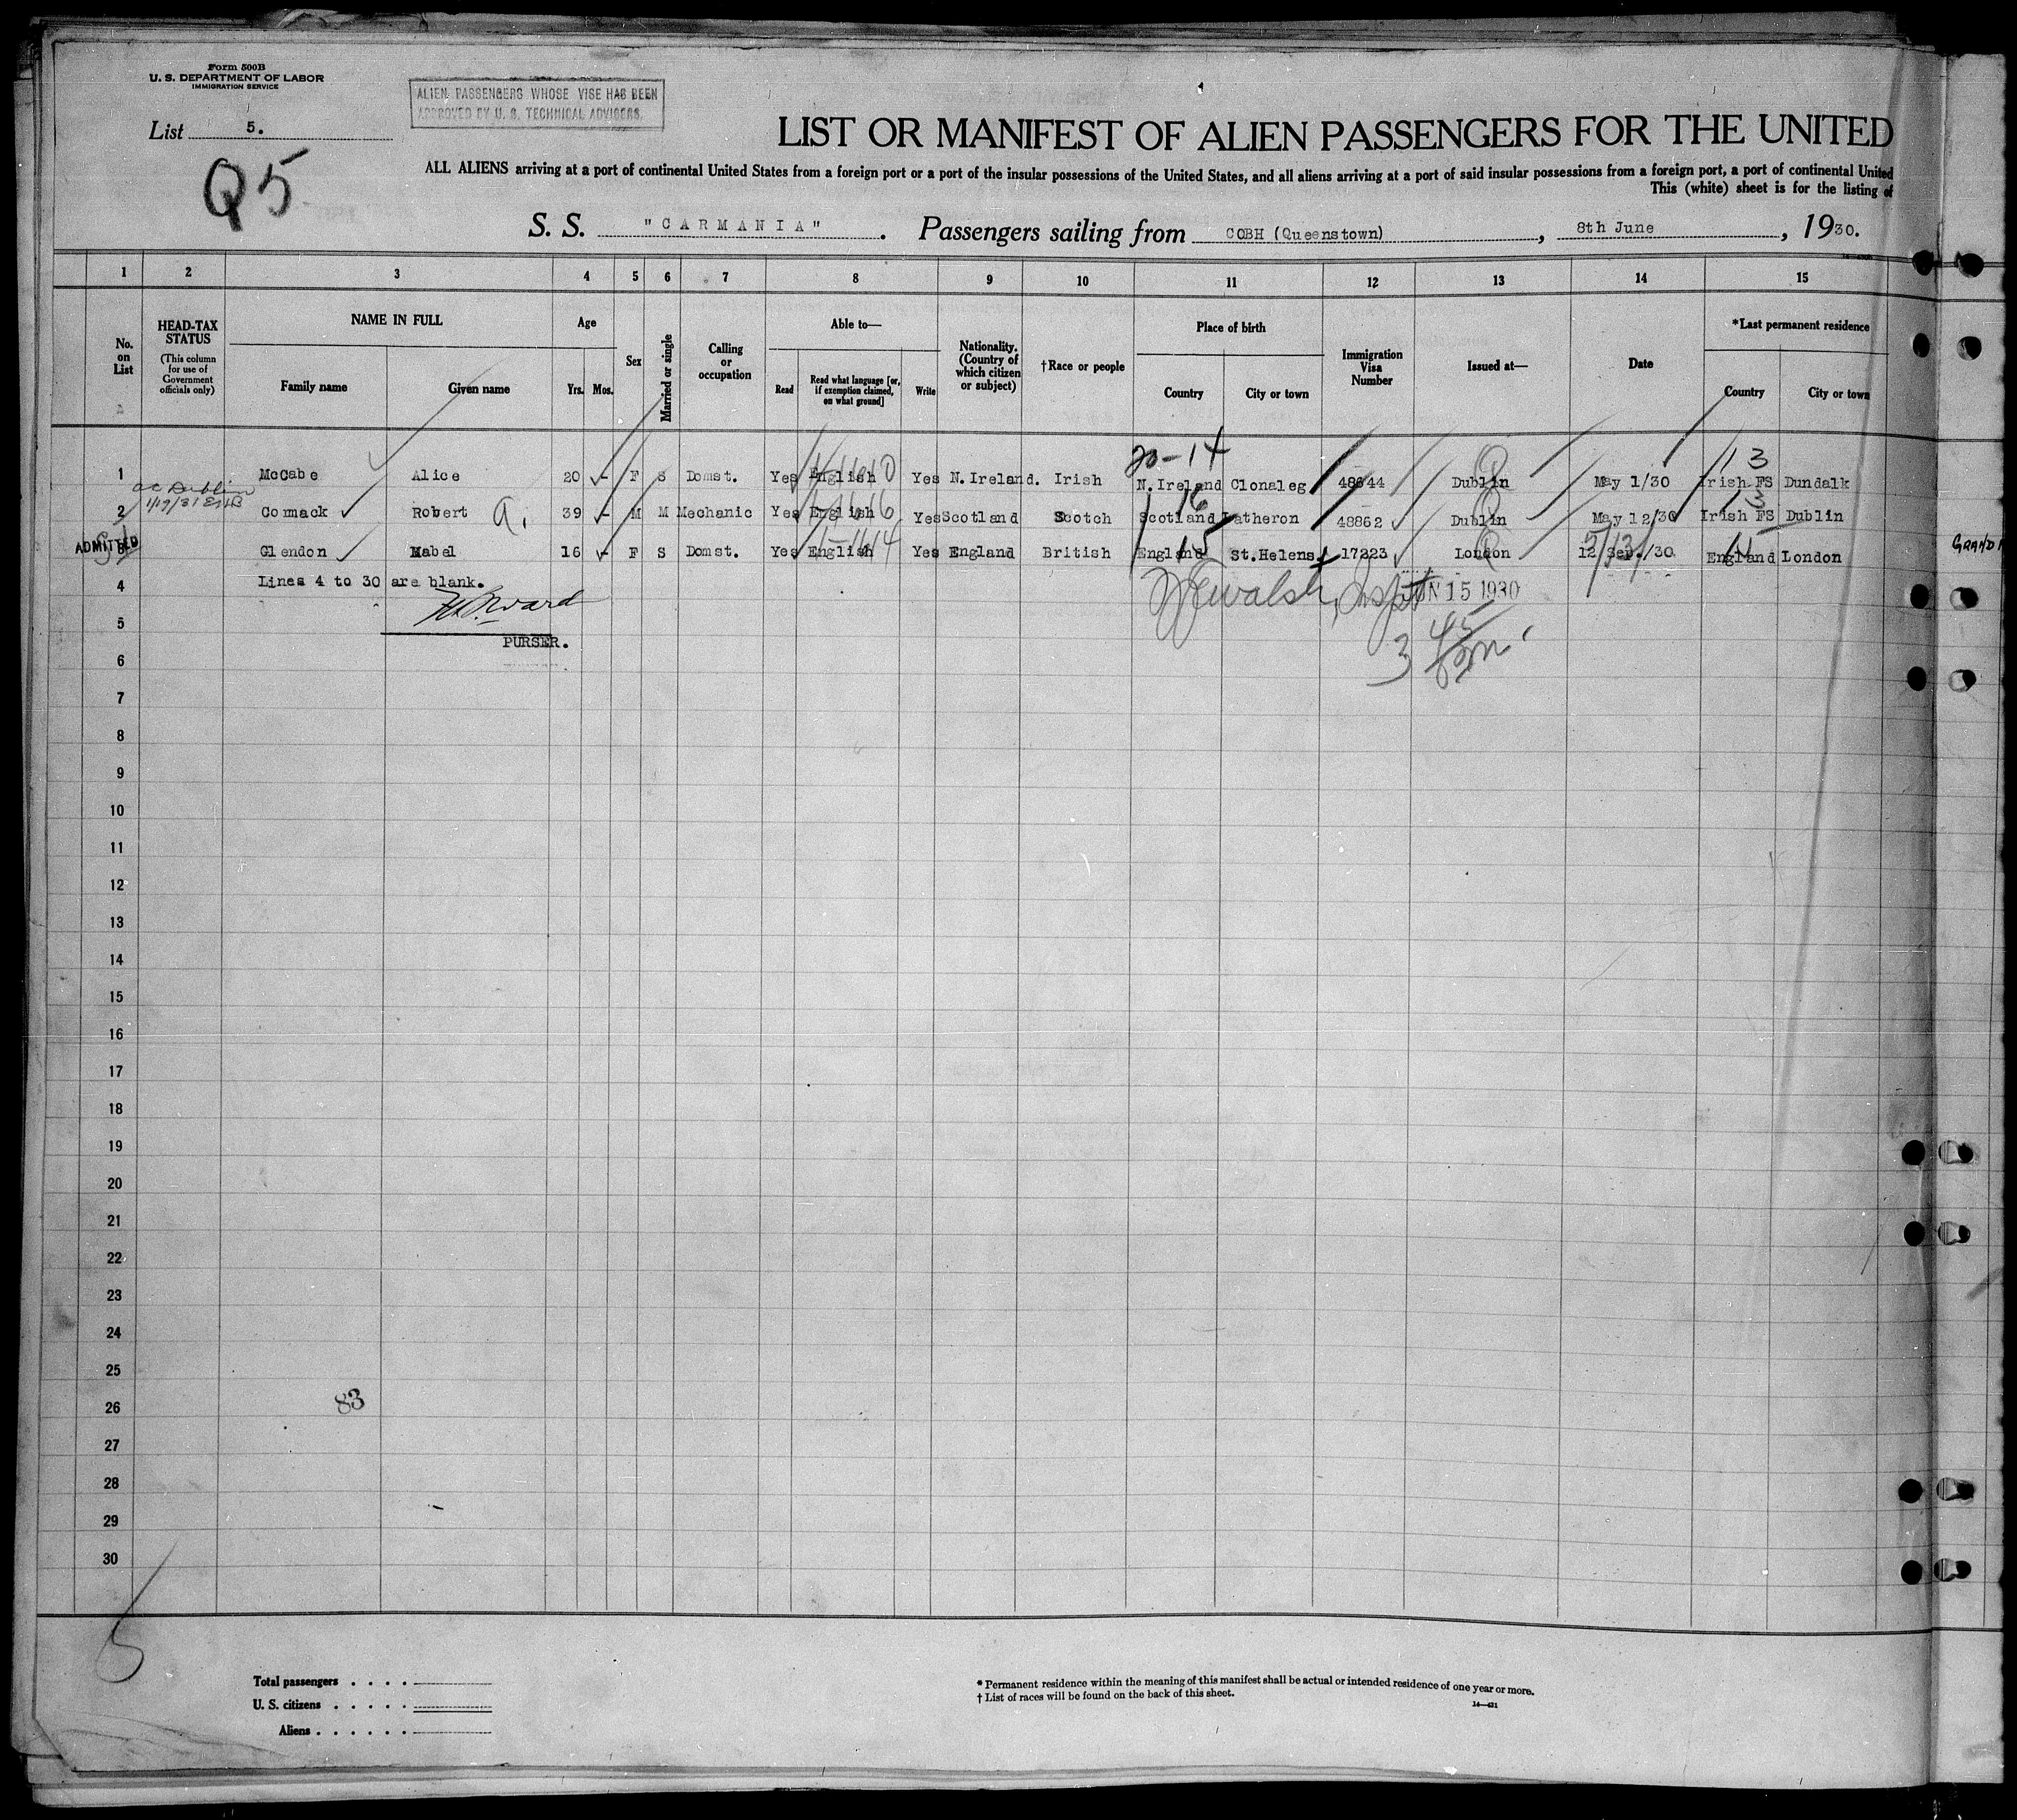 Form 500B
U. S. DEPARTMENT OF LABOR
IMMIGRATION SERVICE
ALIEN PASSENGERS WHOSE VISE HAS BEEN
APPROVED BY U. S. TECHNICAL ADVISERS.
List 5.
Q5
LIST OR MANIFEST OF ALIEN PASSENGERS FOR THE UNITED
ALL ALIENS arriving at a port of continental United States from a foreign port or a port of the insular possessions of the United States, and all aliens arriving at a port of said insular possessions from a foreign port, a port of continental United
This (white) sheet is for the listing of
S. S. "CARMANIA". Passengers sailing from COBH (Queenstown), 8th June, 1930.
1 2 3 4 5 6 7 8 9 10 11 12 13 14 15
No. on List
HEAD-TAX STATUS (This column for use of Government officials only)
NAME IN FULL
Family name Given name
Age
Yrs. Mos.
Sex
Married or single
Calling or occupation
Able to—
Read Read what language [or, if exemption claimed, on what ground] Write
Nationality. (Country of which citizen or subject)
†Race or people
Place of birth
Country City or town
Immigration Visa Number
Issued at—
Date
*Last permanent residence
Country City or town
20-14 13
1 McCabe Alice 20 - F S Domst. Yes English Yes N.Ireland. Irish N.Ireland Clonaleg 48644 Dublin May 1/30 Irish FS Dundalk
16 13
2 Cormack Robert a. 39 - M M Mechanic Yes English Yes Scotland Scotch Scotland Latheron 48862 Dublin May 12/30 Irish FS Dublin
ADMITTED 15
3 Glendon Mabel 16 - F S Domst. Yes English Yes England British England St.Helens 17223 London 12 Sep./30 England London
GRAND
4 Lines 4 to 30 are blank.
JUN 15 1930
5
PURSER.
3
6
7
8
9
10
11
12
13
14
15
16
17
18
19
20
21
22
23
24
25
26
83
27
28
29
30
5
Total passengers . . . .
U. S. citizens . . . . .
Aliens . . . . . .
* Permanent residence within the meaning of this manifest shall be actual or intended residence of one year or more.
† List of races will be found on the back of this sheet.
14—431